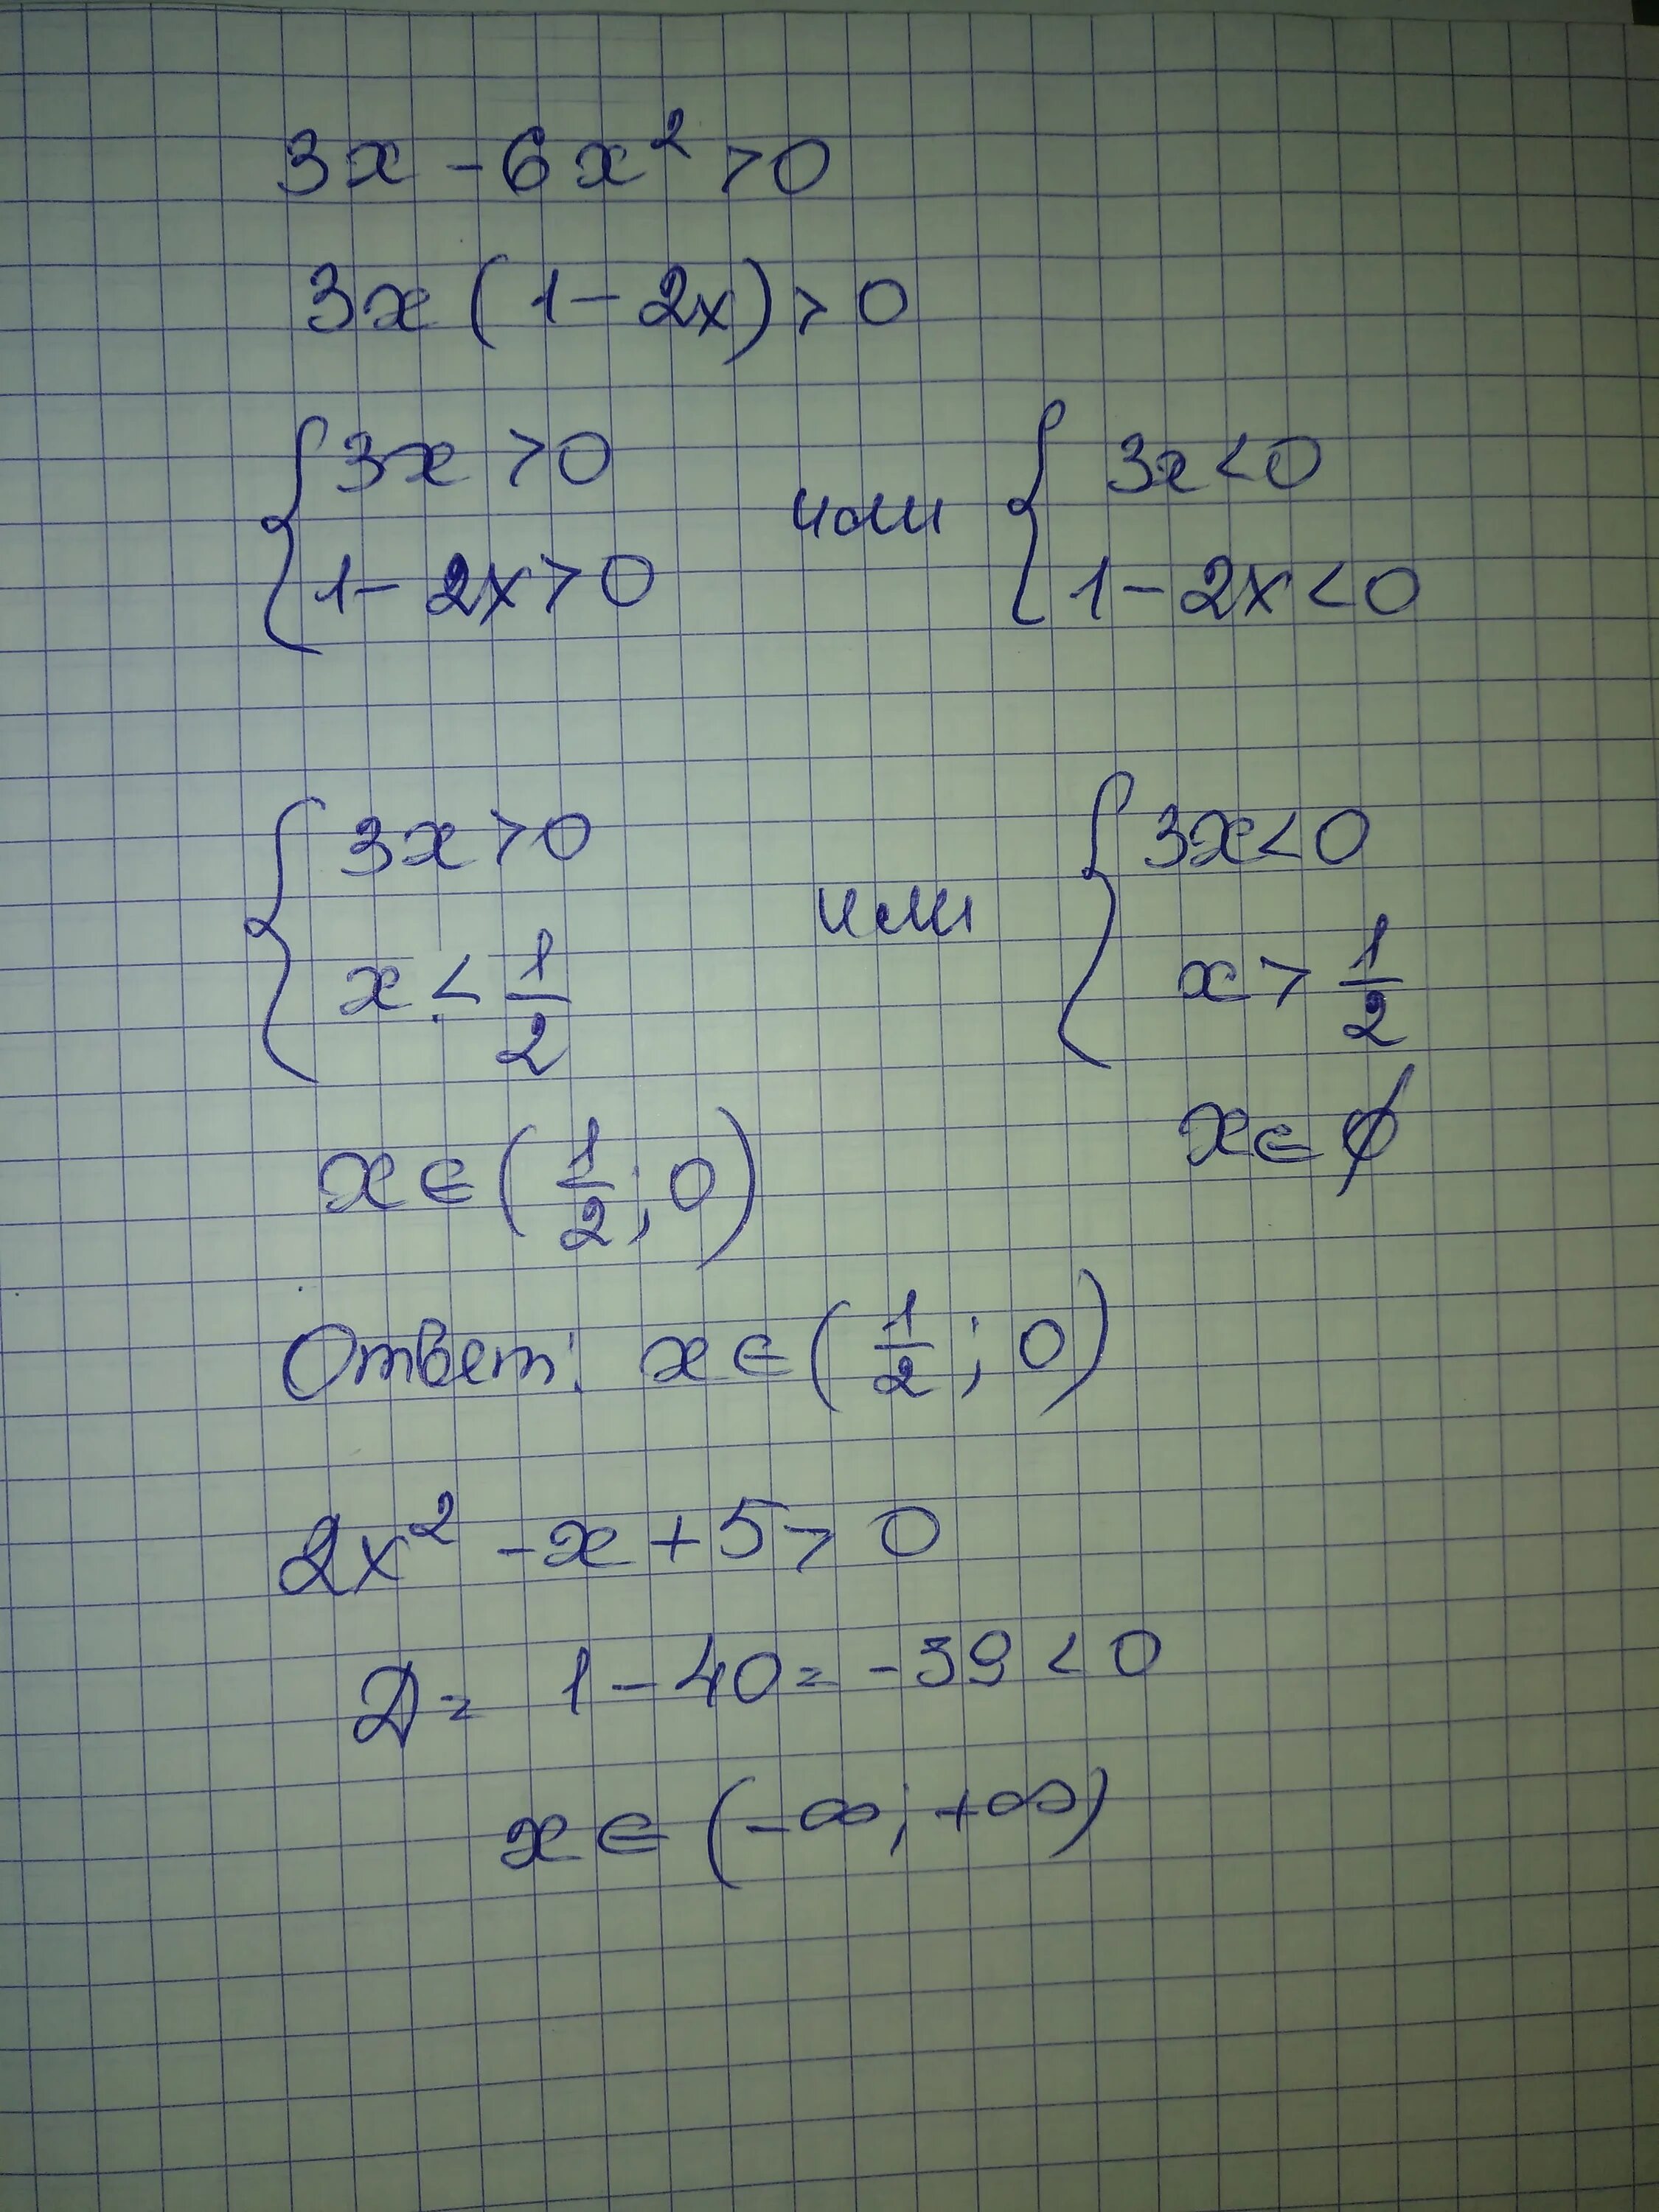 3x - 6x² > 0
3x (1 - 2x) > 0
{ 3x > 0 или { 3x < 0
1 - 2x > 0 1 - 2x < 0
{ 3x > 0 или { 3x < 0
x < 1/2 x > 1/2
x ∈ (1/2; 0) x ∈ ∅
Ответ: x ∈ (1/2; 0)
2x² - x + 5 > 0
D = 1 - 40 = -39 < 0
x ∈ (-∞; +∞)